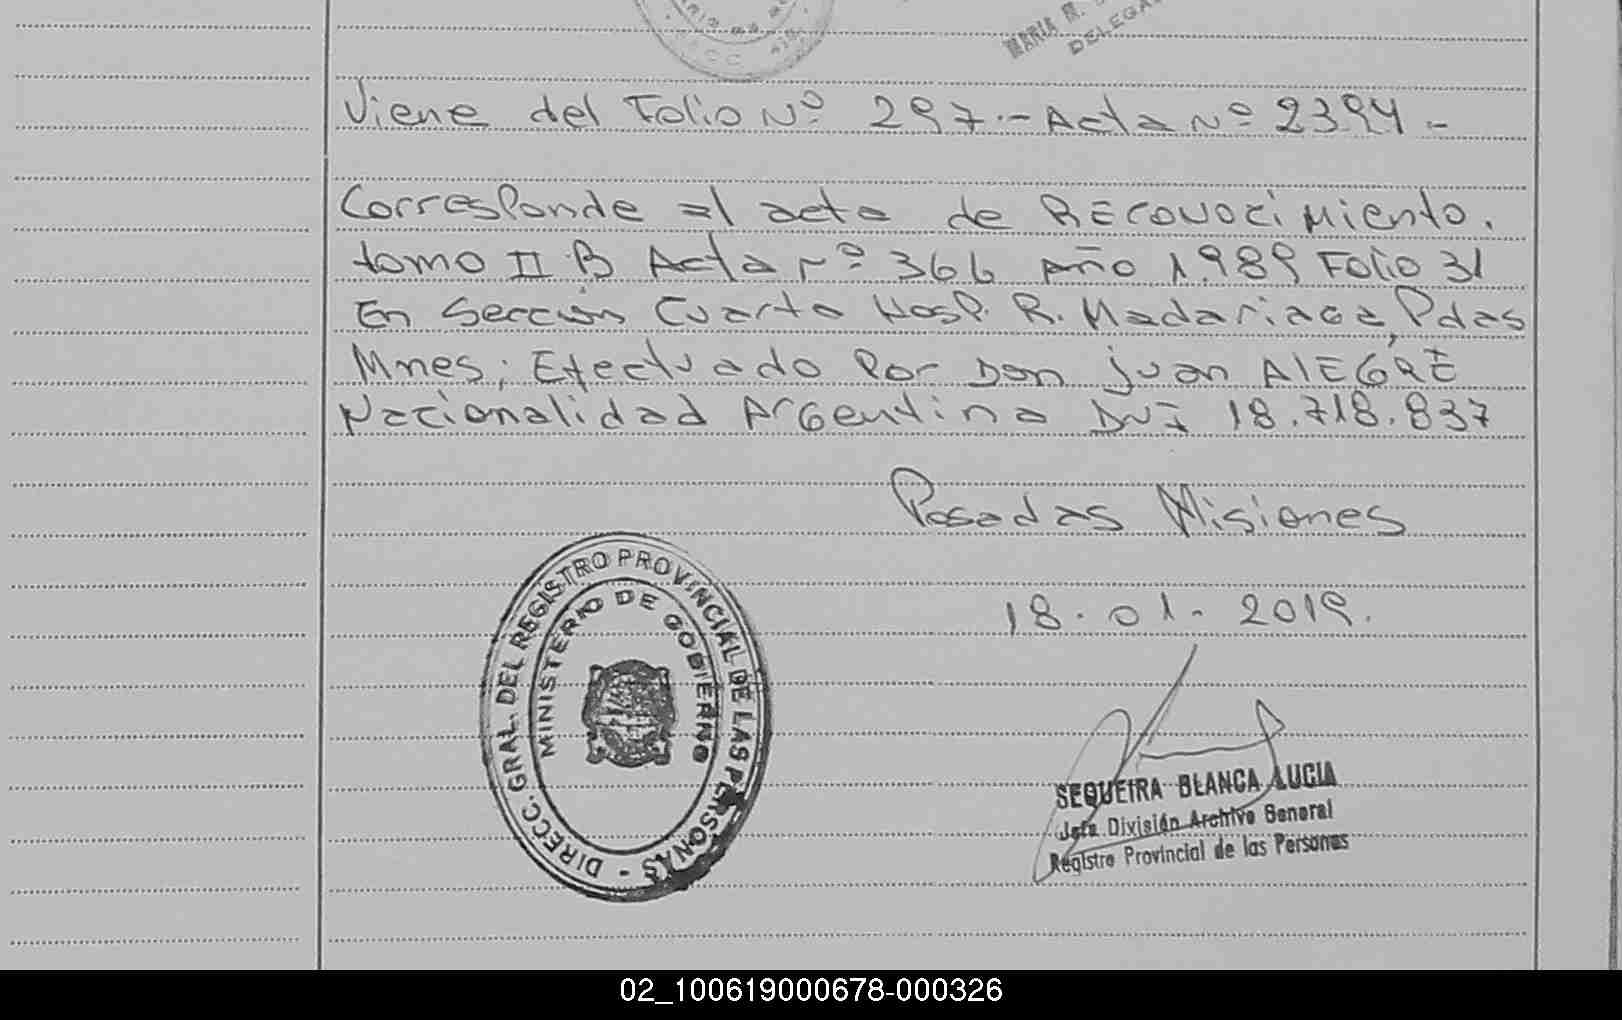 MARIA R.
DELEGA
Viene del Folio Nº 297.- Acta Nº 2394.-
Corresponde al acta de RECONOCIMIENTO.
tomo II B Acta Nº 366 Año 1.989 Folio 31
En Sección Cuarta Hosp. R. Madariaga, Pdas
Mnes; Efectuado Por Don Juan AlEGRE
Nacionalidad Argentina DNI 18.718.837
Posadas Misiones
18.01-2019.
DIRECC. GRAL. DEL REGISTRO PROVINCIAL DE LAS PERSONAS -
MINISTERIO DE GOBIERNO
SEQUEIRA BLANCA LUCIA
Jefa División Archivo General
Registro Provincial de las Personas
02_100619000678-000326